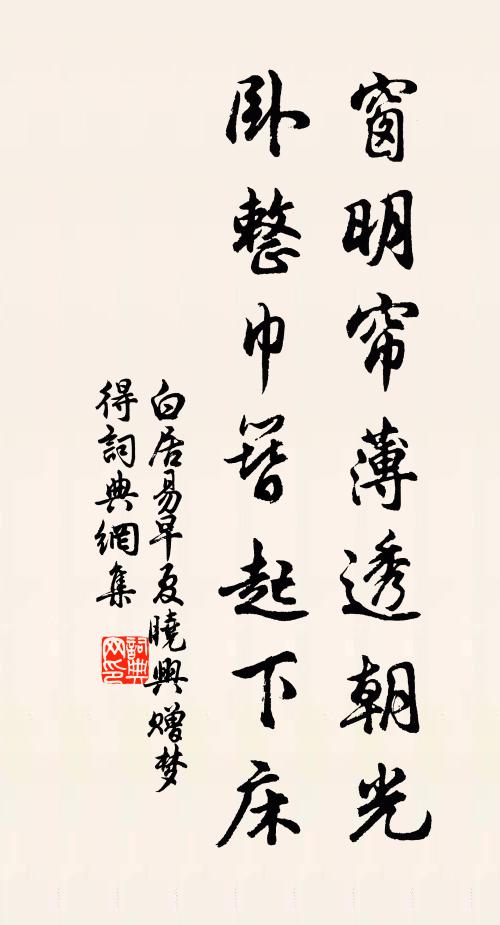 窗明帘薄透朝光
卧整巾簪起下床
白居易早夏曉興赠梦
得詞典網集
詞典
网印